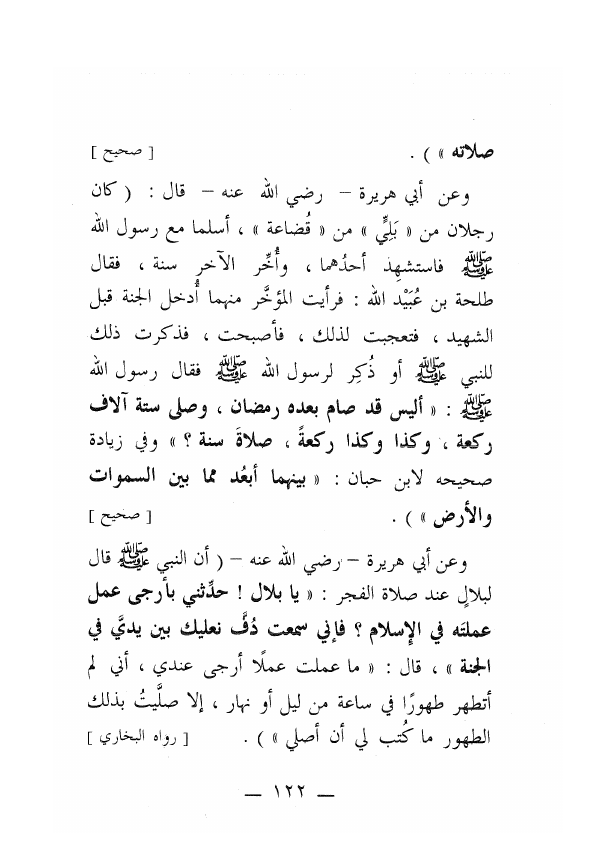 صلاته » ) . [ صحيح ]
وعن أبي هريرة – رضي الله عنه – قال : ( كان
رجلان من « بَلِيٍّ » من « قُضاعة » ، أسلما مع رسول الله
ﷺ فاستشهِد أحدُهما ، وأُخِّر الآخر سنة ، فقال
طلحة بن عُبَيْد الله : فرأيت المؤخَّر منهما أُدخل الجنة قبل
الشهيد ، فتعجبت لذلك ، فأصبحت ، فذكرت ذلك
للنبي ﷺ أو ذُكِر لرسول الله ﷺ فقال رسول الله
ﷺ : « أليس قد صام بعده رمضان ، وصلى ستة آلاف
ركعة ، وكذا وكذا ركعةً ، صلاةَ سنة ؟ » وفي زيادة
صحيحه لابن حبان : « بينهما أبعُد مما بين السموات
والأرض » ) . [ صحيح ]
وعن أبي هريرة – رضي الله عنه – ( أن النبي ﷺ قال
لبلالٍ عند صلاة الفجر : « يا بلال ! حدِّثني بأرجى عمل
عملتَه في الإسلام ؟ فإني سمعت دُفَّ نعليك بين يديَّ في
الجنة » ، قال : « ما عملت عملًا أرجى عندي ، أني لم
أتطهر طهورًا في ساعة من ليل أو نهار ، إلا صلَّيتُ بذلك
الطهور ما كُتب لي أن أصلي » ) . [ رواه البخاري ]
– ١٢٢ –